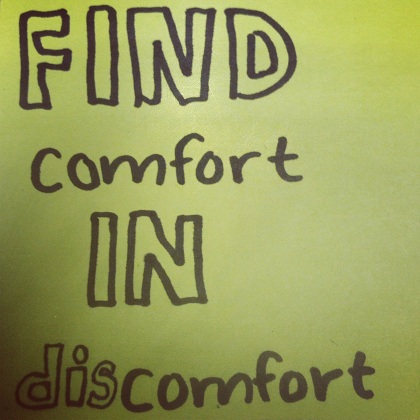 FIND
comfort
IN
discomfort